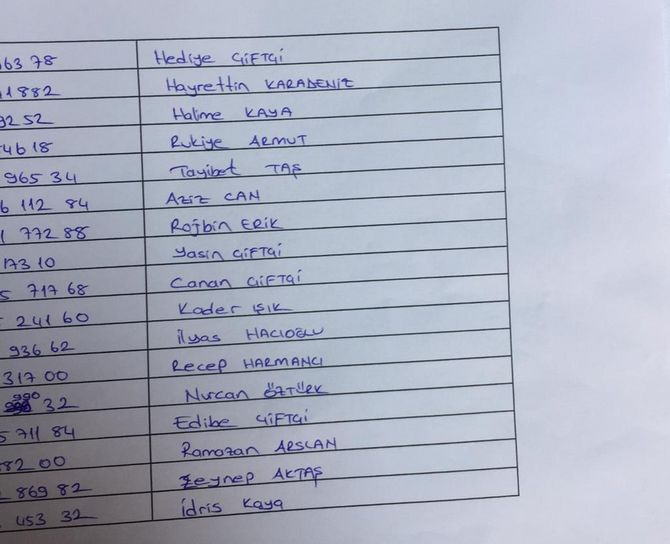 063 78 Hediye ÇİFTÇİ
11882 Hayrettin KARADENİZ
92 52 Halime KAYA
46 18 Rukiye ARMUT
965 34 Tayibet TAŞ
6 112 84 Aziz CAN
1 772 88 Rojbin ERİK
173 10 Yasin ÇİFTÇİ
5 717 68 Canan ÇİFTÇİ
241 60 Kader IŞIK
936 62 İlyas HACIOĞLU
317 00 Recep HARMANCI
990 32 Nurcan ÖZTÜRK
5 711 84 Edibe ÇİFTÇİ
82 00 Ramazan ARSLAN
869 82 Zeynep AKTAŞ
453 32 İdris Kaya